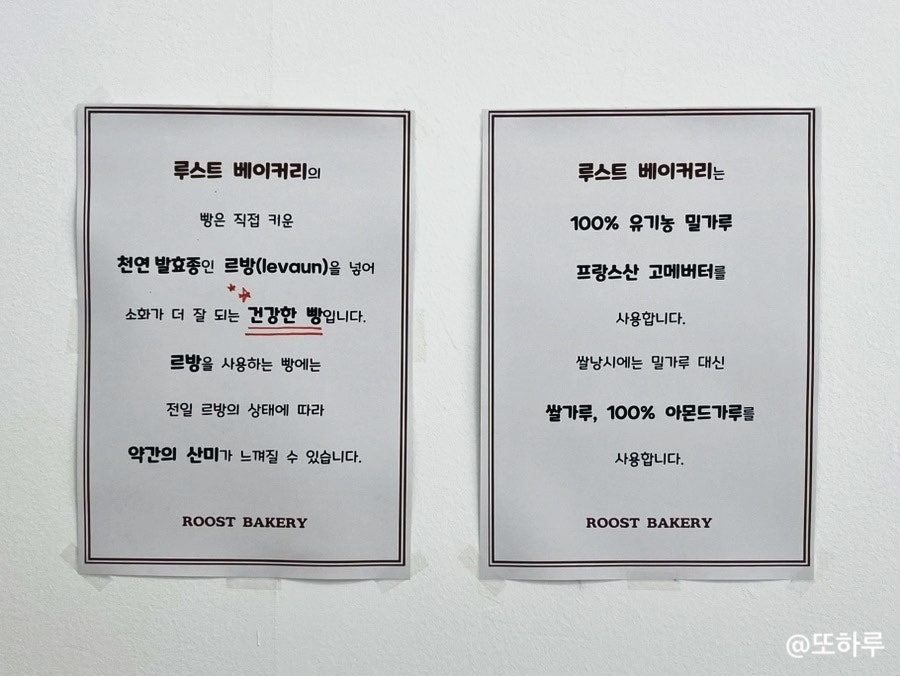 루스트 베이커리의
빵은 직접 키운
천연 발효종인 르방(levaun)을 넣어
소화가 더 잘 되는 건강한 빵입니다.
르방을 사용하는 빵에는
전일 르방의 상태에 따라
약간의 산미가 느껴질 수 있습니다.
ROOST BAKERY
루스트 베이커리는
100% 유기농 밀가루
프랑스산 고메버터를
사용합니다.
쌀낭시에는 밀가루 대신
쌀가루, 100% 아몬드가루를
사용합니다.
ROOST BAKERY
@또하루